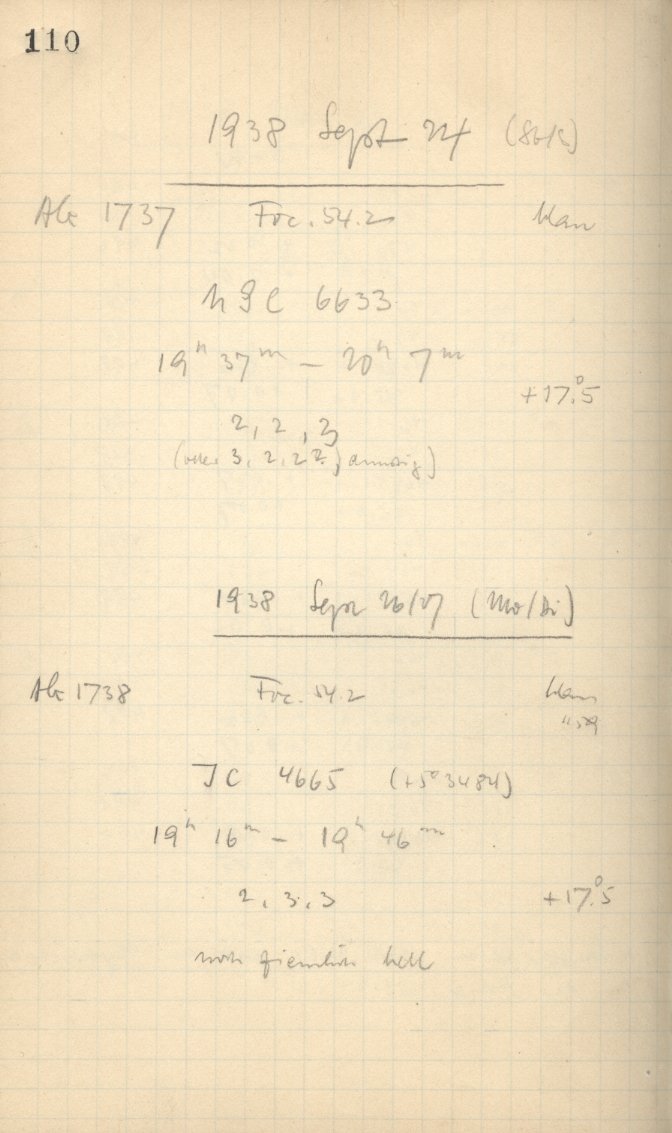 110
1938 Sept 24
1737 Foc. 54.2 klar
NGC 6633
19h 37m – 20h 7m
+17°.5
2, 2, 3
(oder 3, 2, 2
1938 Sept 26/27 (Mo/Di)
1738 Foc. 54.2 klar
IC 4665 (+5° 3484)
19h 16m – 19h 46m
2, 3, 3 +17°.5
noch ziemlich hell